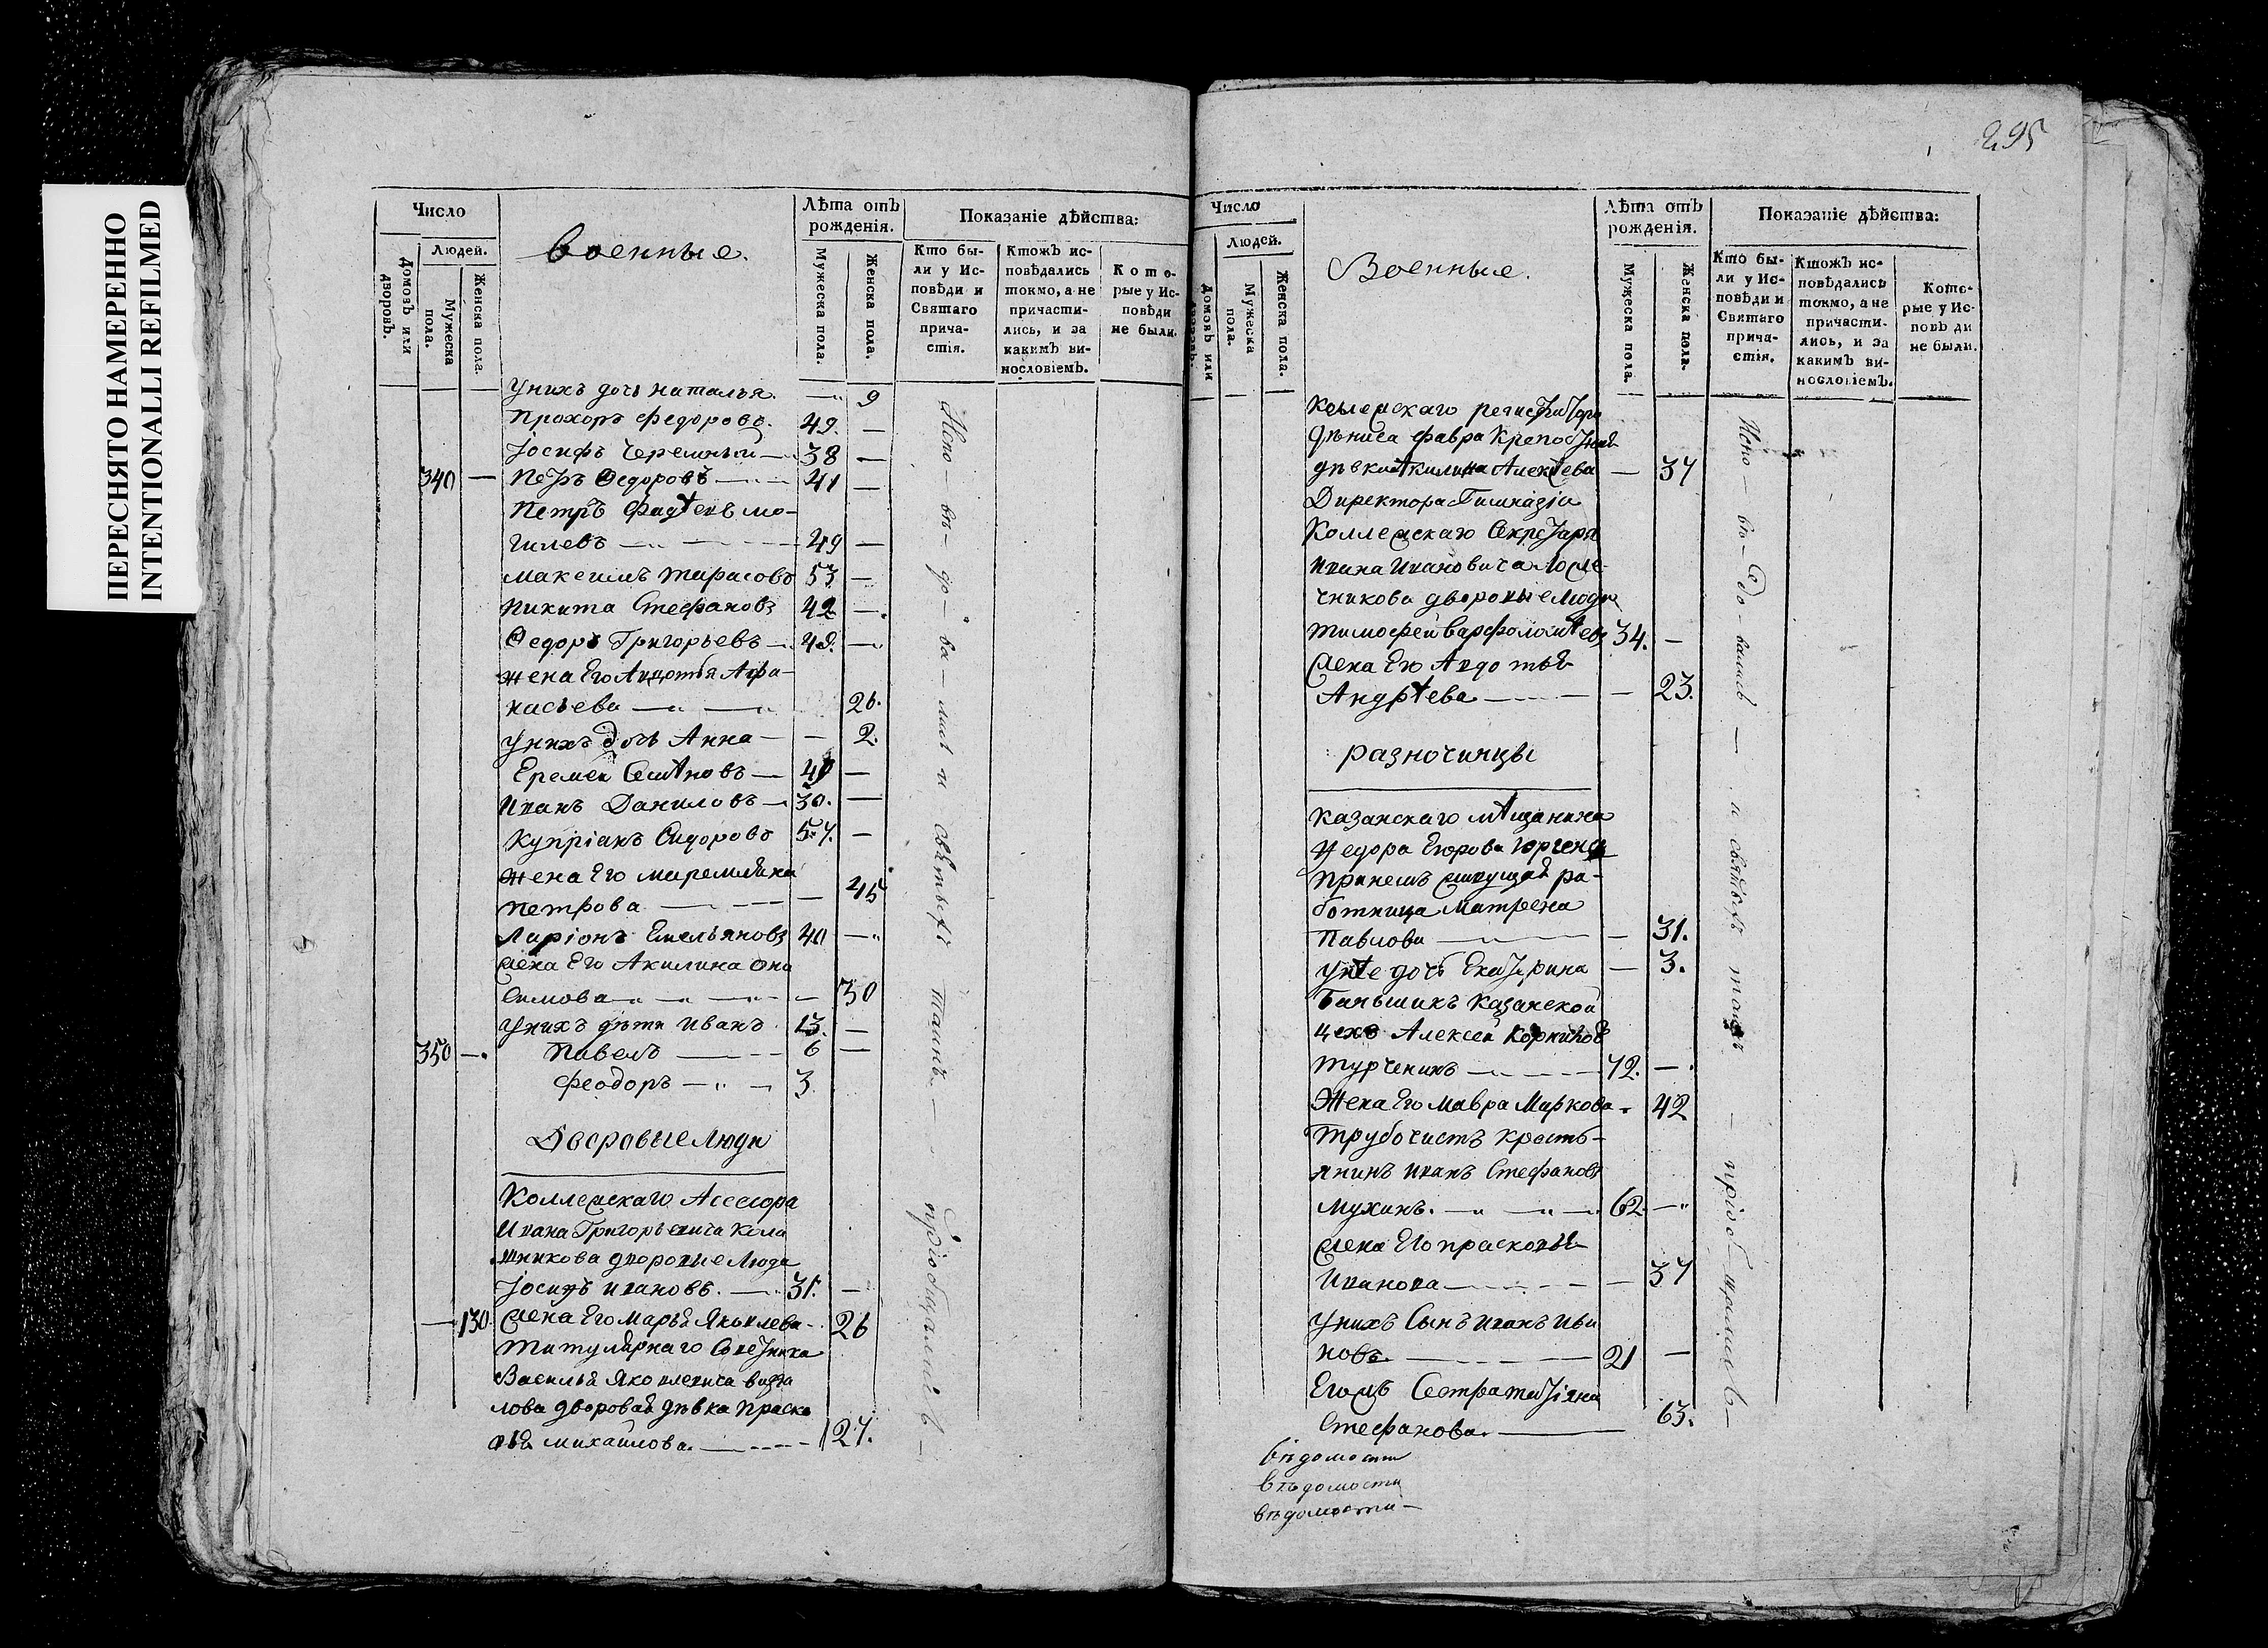 ПЕРЕСНЯТО НАМЕРЕННО
INTENTIONALLI REFILMED
Число
Людей.
Домовъ или дворовъ.
Мужеска пола.
Женска пола.
военные.
Лѣта отъ рожденія.
Мужеска пола.
Женска пола.
Показаніе дѣйства:
Кто были у Исповѣди и Святаго причастія.
Ктожъ исповѣдались токмо, а не причастились, и за какимъ винословіемъ.
Которые у Исповѣди не были.
унихъ дочь наталья. — 9
Прохоръ Федоровъ. 49. —
Іосифъ Черемный — 38 —
340 — Петръ Ѳедоровъ — 41 —
Петръ Фадѣевъ мо-
гилевъ — 49 —
максимъ тарасовъ 53 —
Никита Стефановъ 42 —
Ѳедоръ Григорьевъ — 48. —
жена Его Авдотья Афа-
насьева — 26.
унихъ дочь Анна — — 2.
Еремей Семѣновъ — 49 —
Иванъ Даниловъ — 30. —
Купріанъ Сидоровъ 57. —
жена Его маремьяна
петрова — — 45
Ларіонъ Емельяновъ 40 —
жена Его Акилина Они
симова — — 30
унихъ дѣти Иванъ 13. —
350 — Павелъ — 6 —
Феодоръ — 3
Дворовые люди
Коллежскаго Асессора
Ивана Григорьевича Кола
шникова дворовые люди
Іосифъ ивановъ. — 31. —
— 130 жена Его марья Яковлева 26
Титулярнаго Советника
Василья Яковлевича
лова дворовая дѣвка праско
вья михайлова. — 27.
Испо-вѣ-до-ва-лись и святыхъ таинъ — пріобщались —
295
Число
Людей.
Домовъ или дворовъ.
Мужеска пола.
Женска пола.
Военные.
Лѣта отъ рожденія.
Мужеска пола.
Женска пола.
Показаніе дѣйства:
Кто были у Исповѣди и Святаго причастія.
Ктожъ исповѣдались токмо, а не причастились, и за какимъ винословіемъ.
Которые у Исповѣди не были.
Коллежскаго регистратора
Дениса фавра крепостная
дѣвка Акилина Алексѣева — 37
Директора Гимназіи
Коллежскаго Секретаря
Ивана Ивановича
чникова дворовые люди
тимофей варфоломѣевъ 34. —
жена Его Авдотья
Андрѣева — — 23.
разночинцы
казанскаго мѣщанина
Федора Егорова
принемъ живущая ра-
ботница матрена
Павлова — — 31.
унѣе дочь Екатерина — 3.
Баньщикъ казанской
цеха Алексей
турченинъ — 72. —
Жена Его мавра Маркова — 42
трубочистъ кресть-
янинъ иванъ Стефановъ
мухинъ. — 62 —
жена Его прасковья
Иванова — — 37
унихъ Сынъ иванъ Ива
новъ. — 21 —
Егожъ Сестра татіяна
Стефанова. — 63.
Испо-вѣ-до-вались — и святыхъ таинъ — пріоб-щались —
вѣдомости
вѣдомости
вѣдомости —